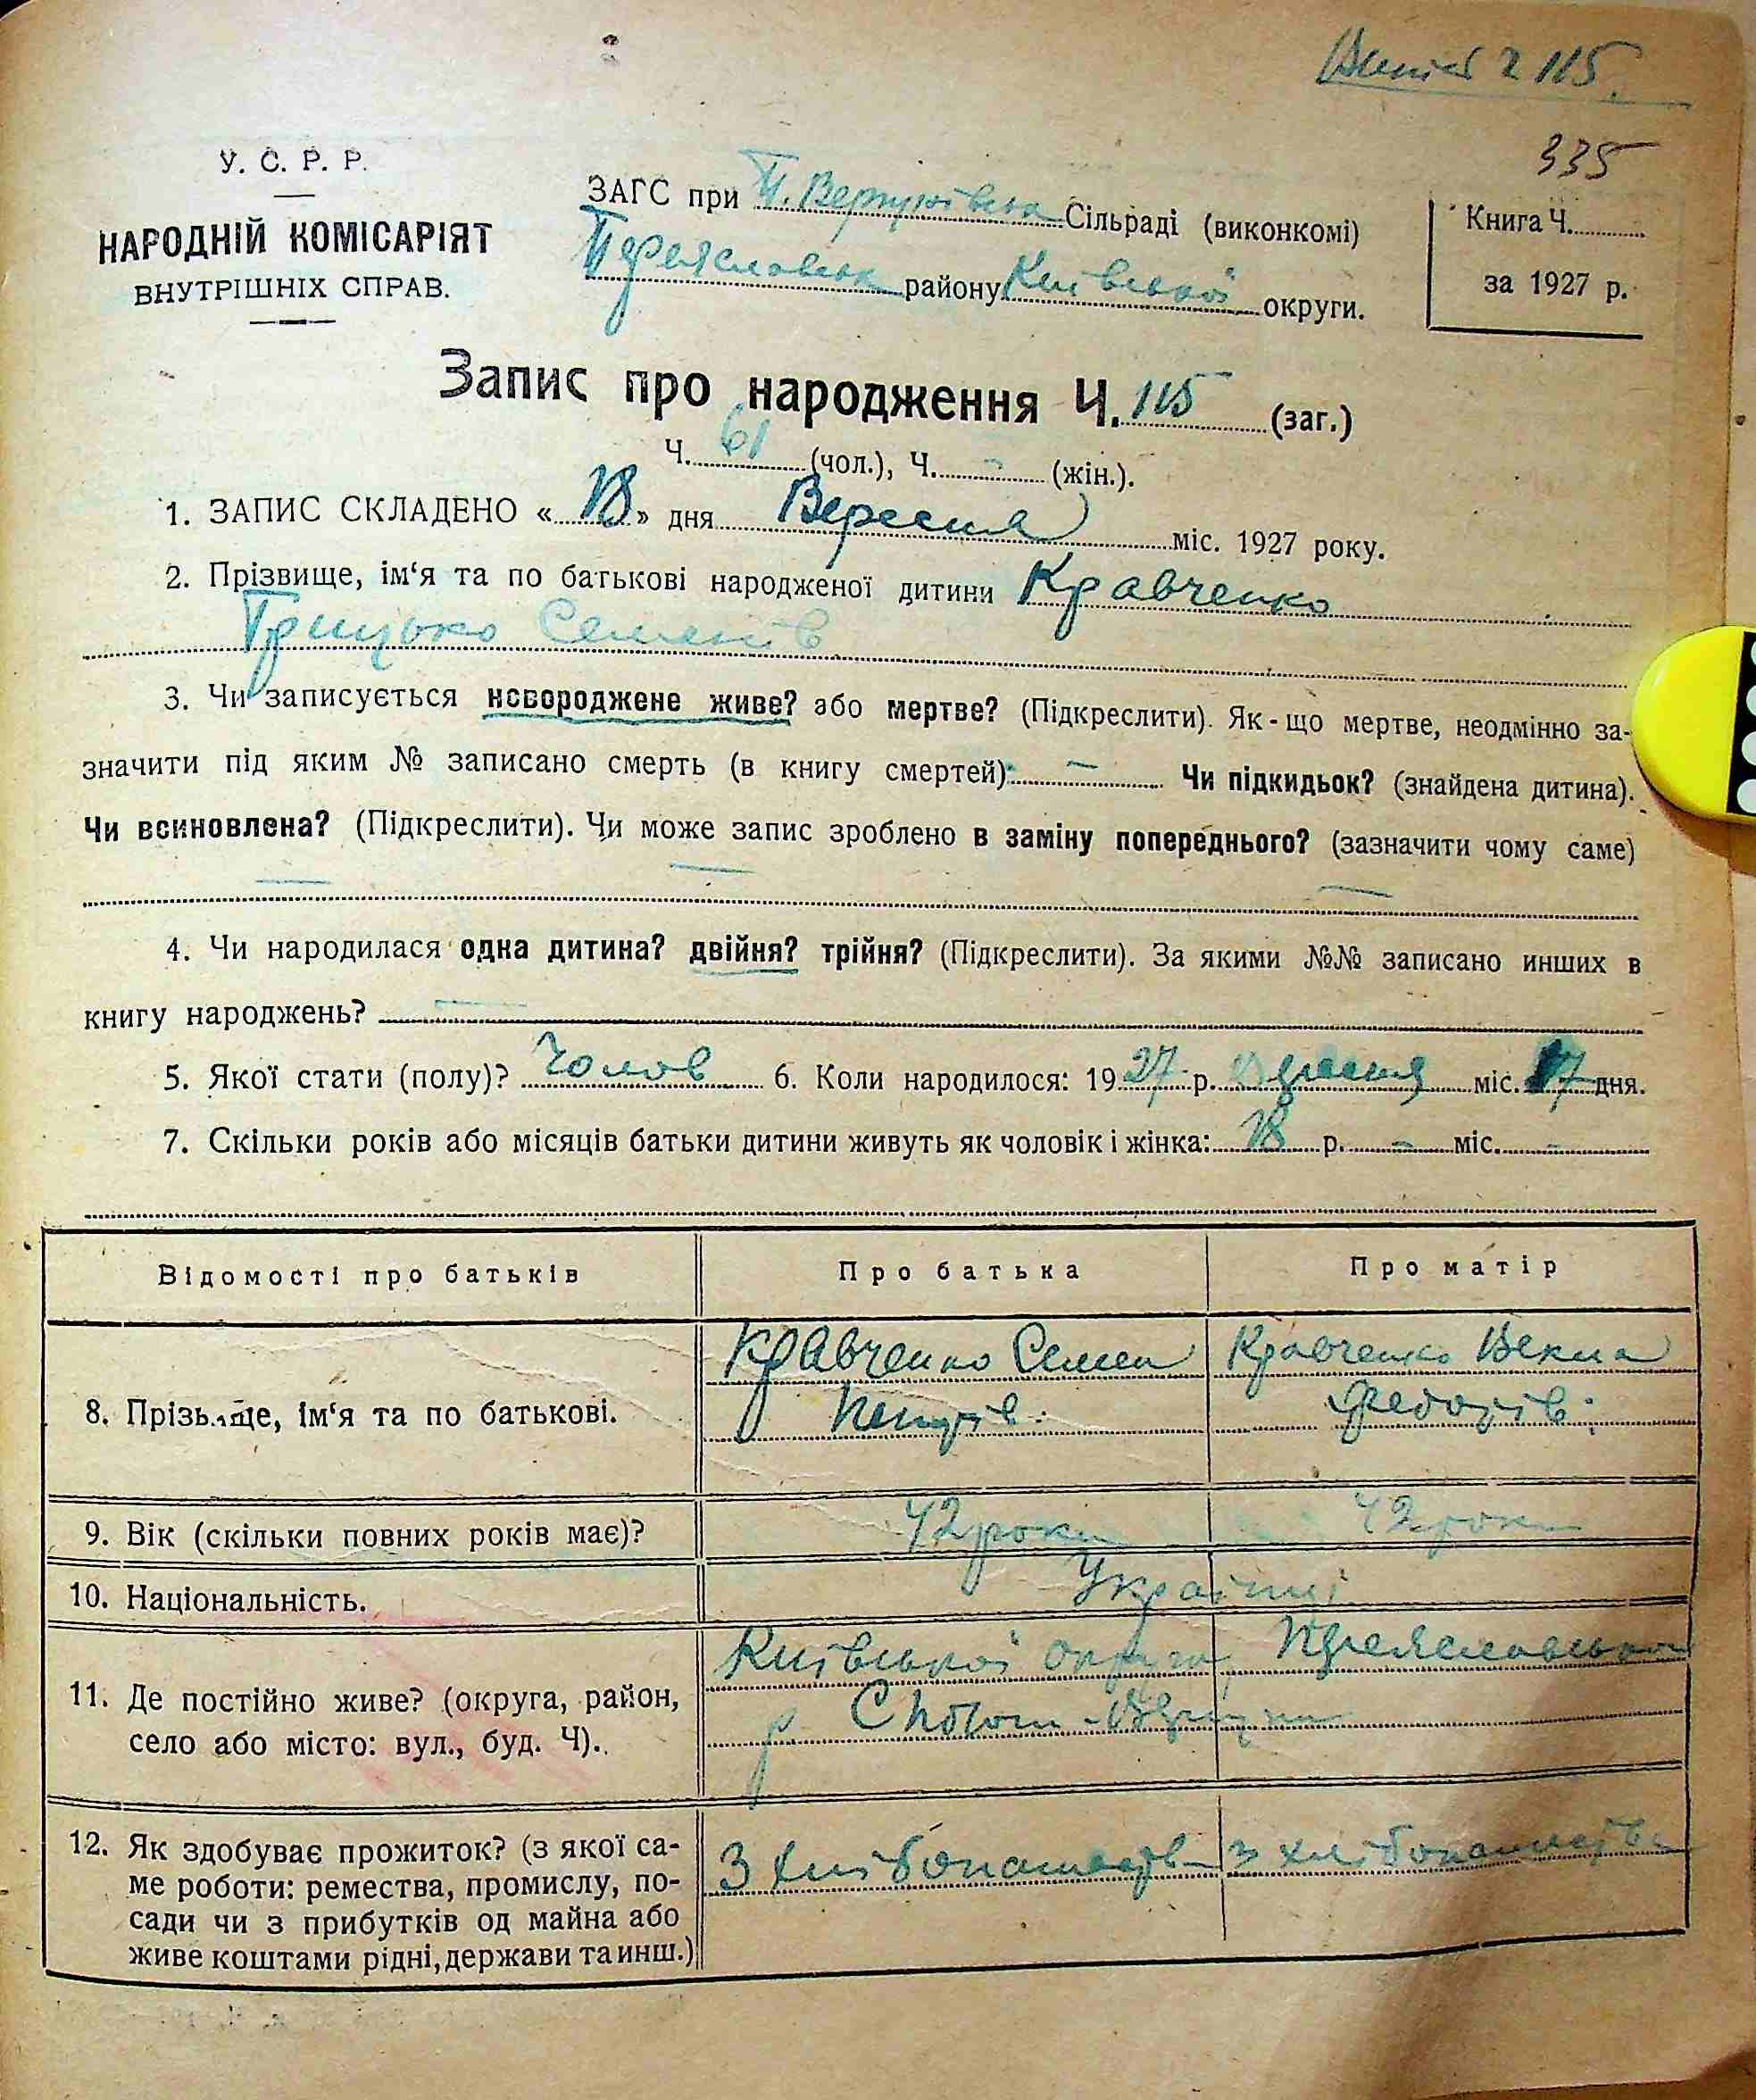 115
335
У. С. Р. Р.
НАРОДНІЙ КОМІСАРІЯТ
ВНУТРІШНІХ СПРАВ.
ЗАГС при Сільраді (виконкомі)
Переяславськ району Київської округи.
Книга Ч.
за 1927 р.
Запис про народження Ч. 115 (заг.)
Ч. 61 (чол.), Ч. - (жін.).
1. ЗАПИС СКЛАДЕНО «18» дня Вересня міс. 1927 року.
2. Прізвище, ім‘я та по батькові народженої дитини Кравченко
Грицько Семенів
3. Чи записується новороджене живе? або мертве? (Підкреслити). Як-що мертве, неодмінно за-
значити під яким № записано смерть (в книгу смертей): — Чи підкидьок? (знайдена дитина).
Чи всиновлена? (Підкреслити). Чи може запис зроблено в заміну попереднього? (зазначити чому саме)
4. Чи народилася одна дитина? двійня? трійня? (Підкреслити). За якими №№ записано инших в
книгу народжень? —
5. Якої стати (полу)? Чолов 6. Коли народилося: 1927 р. Вересня міс. 17 дня.
7. Скільки років або місяців батьки дитини живуть як чоловік і жінка: 18 р. - міс. -
Відомості про батьків Про батька Про матір
8. Прізьвище, ім‘я та по батькові. Кравченко Семен Кравченко Векла
Федорів
9. Вік (скільки повних років має)? 42 роки 42 роки
10. Національність. Українці
11. Де постійно живе? (округа, район, село або місто: вул., буд. Ч).. Київської округи Переяславського
р. С
12. Як здобуває прожиток? (з якої са-
ме роботи: ремества, промислу, по-
сади чи з прибутків од майна або
живе коштами рідні, держави та инш.)
З хліборобства з хліборобства